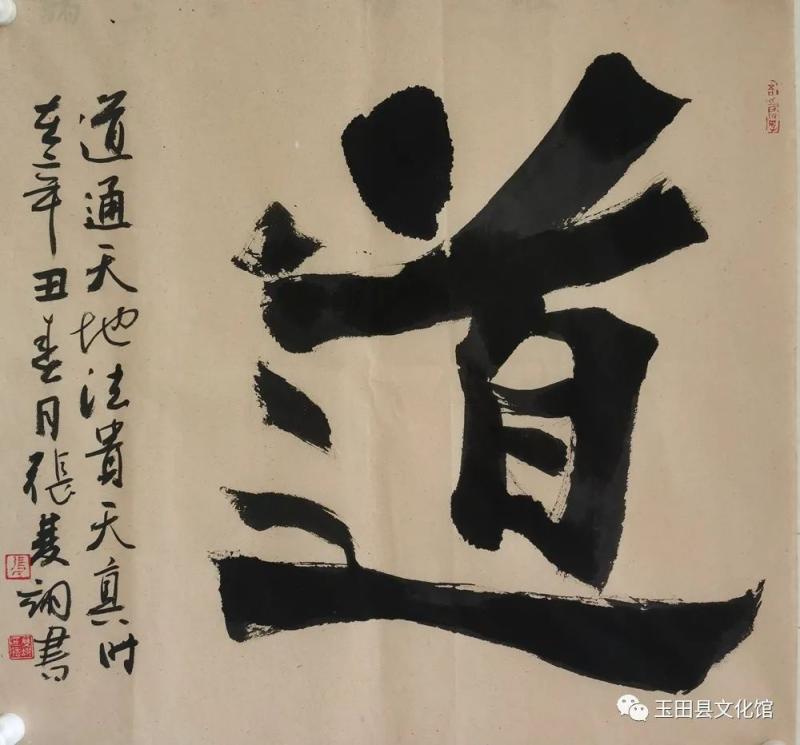 道
道通天地法貴天真時
在辛丑春月張
書
玉田县文化馆